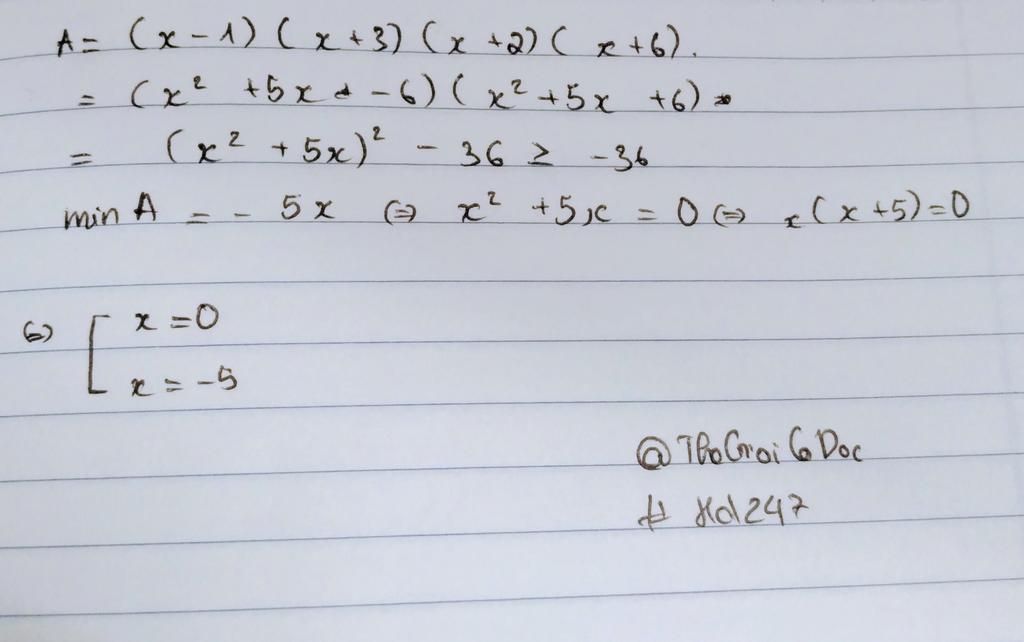 A = (x - 1) ( x + 3) (x + 2) ( x + 6).
= (x² + 5x - 6) ( x² + 5x + 6)
= (x² + 5x)² - 36 ≥ -36
min A = - 5x ⇔ x² + 5x = 0 ⇔ x(x + 5) = 0
⇔ [ x = 0
x = -5
@ThoGroiCoDoc
# Hd247